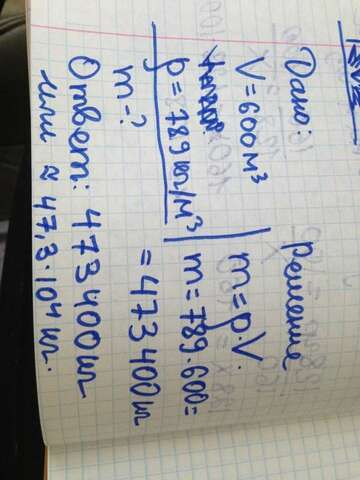 Дано:
V=600м³
ρ=789кг/м³
m-?
Решение
m=ρ·V
m=789·600=
=473400кг
Ответ: 473400кг
или ≈ 47,3·10⁴кг.